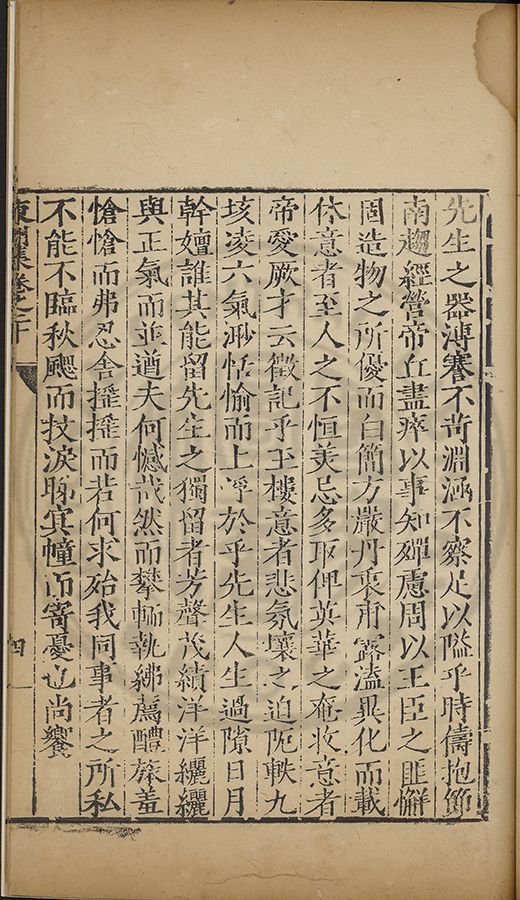 先生之器溥謇不苛淵涵不察足以隘乎時儔抱節
南趨經營帝丘盡瘁以事知殫慮周以王臣之匪懈
固造物之所優而白簡方嚴丹衷甫露溘異化而載
休意者至人之不恒美忌多取俾英華之奄收意者
帝愛厥才云徵記乎玉樓意者悲氛壤之迫阨軼九
垓凌六氣渺恬愉而上浮於乎先生人生過隙日月
幹嬗誰其能留先生之獨留者芳聲茂績洋洋纚纚
與正氣而並遒夫何憾哉然而攀輀執紼薦醴旅羞
愴愴而弗忍舍摧摧而若何求殆我同事者之所私
不能不臨秋颸而抆淚睇㝠幢而寄憂也尚饗
集卷之十
四